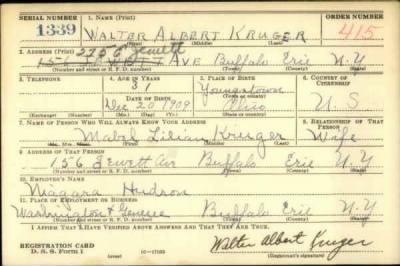 SERIAL NUMBER 1. NAME (Print) ORDER NUMBER
1339 WALTER ALBERT KRUGER 415
(First) (Middle) (Last)
2. ADDRESS (Print) 275 E Jewett
156 JEWETT AVE Buffalo Erie N-Y
(Number and street or R. F. D. number) (Town) (County) (State)
3. TELEPHONE 4. AGE IN YEARS 5. PLACE OF BIRTH 6. COUNTRY OF CITIZENSHIP
31 Youngstown
DATE OF BIRTH (Town or county)
Dec 20 1909 Ohio U.S
(Exchange) (Number) (Mo.) (Day) (Yr.) (State or country)
7. NAME OF PERSON WHO WILL ALWAYS KNOW YOUR ADDRESS 8. RELATIONSHIP OF THAT PERSON
Mabel Lilian Kruger Wife
(Mr., Mrs., Miss) (First) (Middle) (Last)
9. ADDRESS OF THAT PERSON
156 Jewett Av Buffalo Erie N.Y
(Number and street or R. F. D. number) (Town) (County) (State)
10. EMPLOYER'S NAME
Niagara Hudson
11. PLACE OF EMPLOYMENT OR BUSINESS
Washington & Genesee Buffalo Erie N.Y
(Number and street or R. F. D. number) (Town) (County) (State)
I AFFIRM THAT I HAVE VERIFIED ABOVE ANSWERS AND THAT THEY ARE TRUE.
REGISTRATION CARD
D. S. S. FORM 1 (over) Walter Albert Kruger
(Registrant's signature)